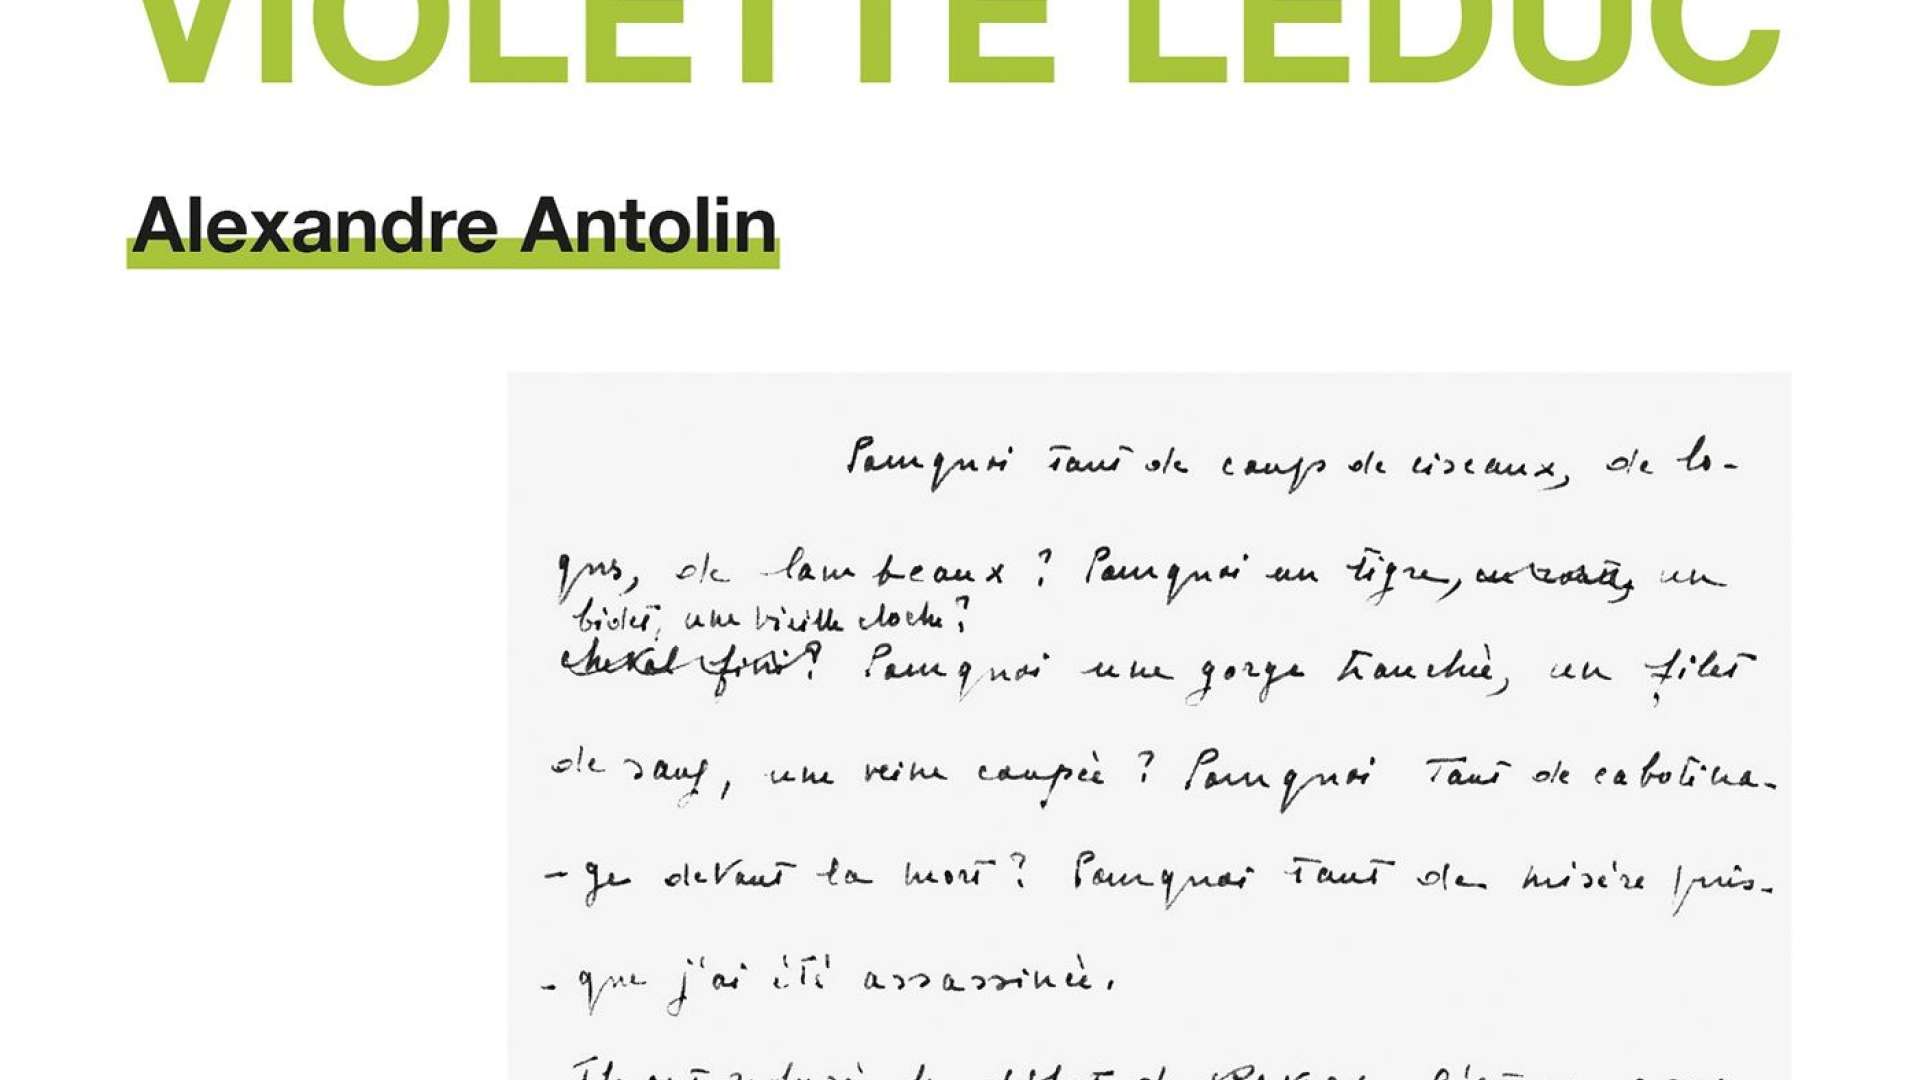 VIOLETTE LEDUC
Alexandre Antolin
Pourquoi tant de coups de ciseaux, de lo-
ques, de lambeaux ? Pourquoi un tigre, un
bidet, une vieille cloche ?
cheval fini ? Pourquoi une gorge tranchée, un filet
de sang, une veine coupée ? Pourquoi tant de cabotina-
- ge devant la mort ? Pourquoi tant de misère puis-
- que j'ai été assassinée.